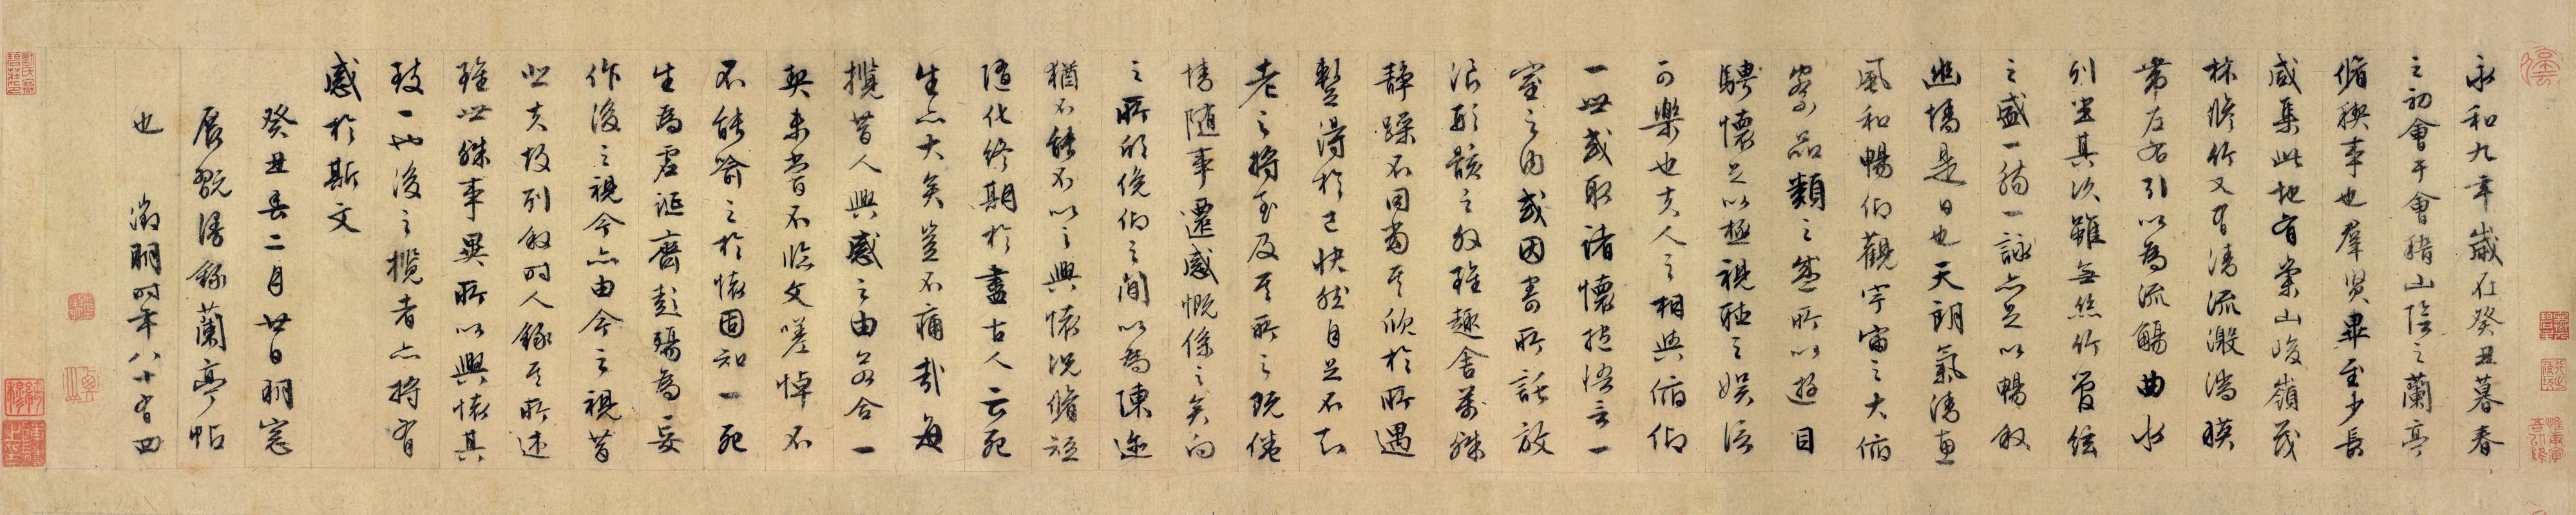 永和九年歲在癸丑暮春
之初會于會稽山陰之蘭亭
脩禊事也羣賢畢至少長
咸集此地有崇山峻嶺茂
林脩竹又有清流激湍暎
帶左右引以為流觴曲水
列坐其次雖無絲竹管絃
之盛一觴一詠亦足以暢敘
幽情是日也天朗氣清惠
風和暢仰觀宇宙之大俯
察品類之盛所以遊目
騁懷足以極視聽之娛信
可樂也夫人之相與俯仰
一世或取諸懷抱悟言一
室之內或因寄所託放
浪形骸之外雖趣舍萬殊
靜躁不同當其欣於所遇
蹔得於己快然自足不知
老之將至及其所之既倦
情隨事遷感慨係之矣向
之所欣俛仰之間以為陳迹
猶不能不以之興懷況脩短
隨化終期於盡古人云死
生亦大矣豈不痛哉每
攬昔人興感之由若合一
契未嘗不臨文嗟悼不
不能喻之於懷固知一死
生為虛誕齊彭殤為妄
作後之視今亦由今之視昔
悲夫故列敘時人錄其所述
雖世殊事異所以興懷其
致一也後之攬者亦將有
感於斯文
癸丑春二月廿日明窓
展翫漫錄蘭亭帖
也 徵明時年八十有四